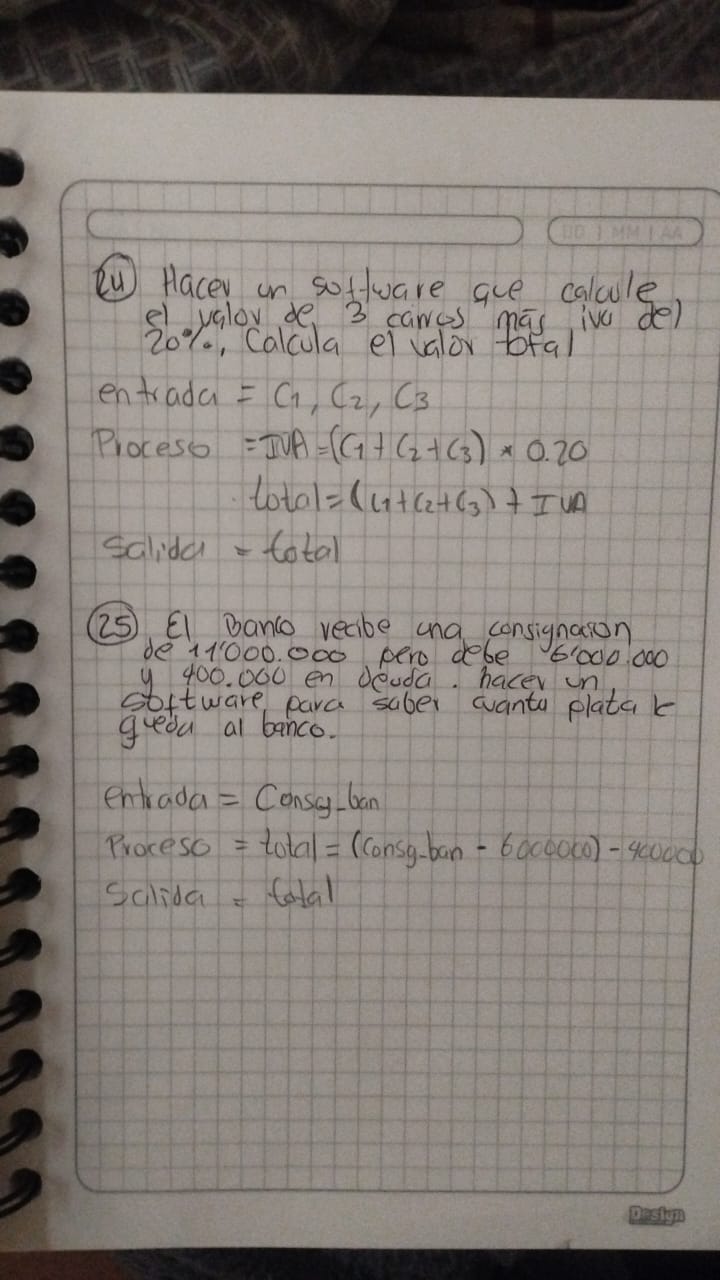 DD | MM | AA
24 Hacer un software que calcule
el valor de 3 carros más iva del
20%, Calcula el valor total
entrada = C1, C2, C3
Proceso = IVA = (C1 + C2 + C3) * 0.20
total = (C1 + C2 + C3) + IVA
Salida = total
25 El Banco recibe una consignacion
de 11'000.000 pero debe 6'000.000
y 400.000 en deuda. hacer un
software para saber cuanta plata le
queda al banco.
entrada = Consg_ban
Proceso = total = (Consg_ban - 6000000) - 400000
Salida = total
Design